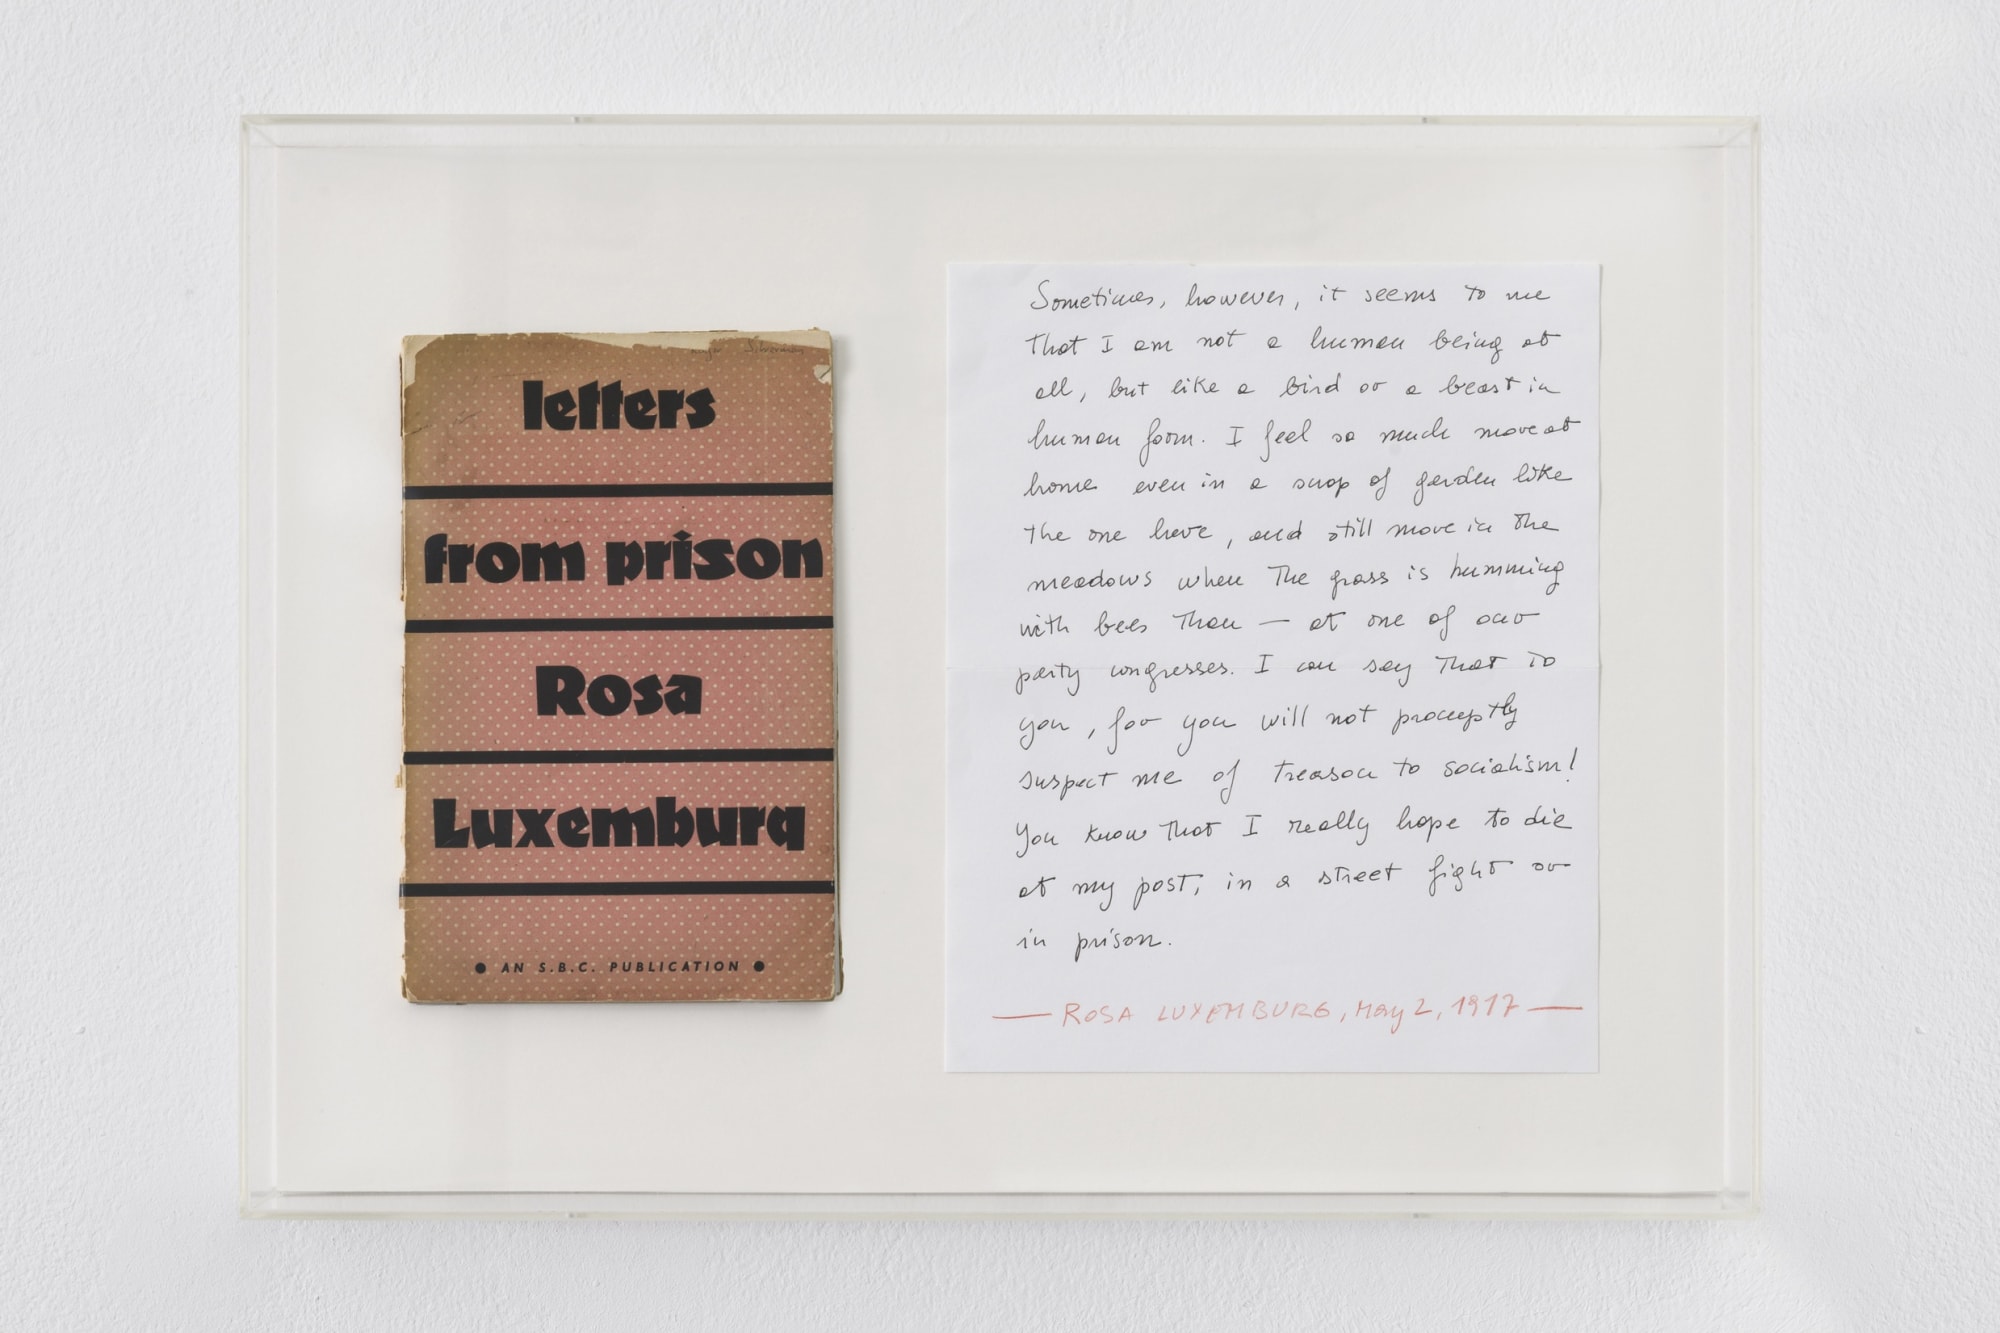 letters
from prison
Rosa
Luxemburg
● AN S.B.C. PUBLICATION ●
Sometimes, however, it seems to me
that I am not a human being at
all, but like a bird or a beast in
human form. I feel so much more at
home even in a scrap of garden like
the one here, and still more in the
meadows when the grass is humming
with bees than — at one of our
party congresses. I can say that to
you, for you will not promptly
suspect me of treason to socialism!
You know that I really hope to die
at my post, in a street fight or
in prison.
— ROSA LUXEMBURG, May 2, 1917 —